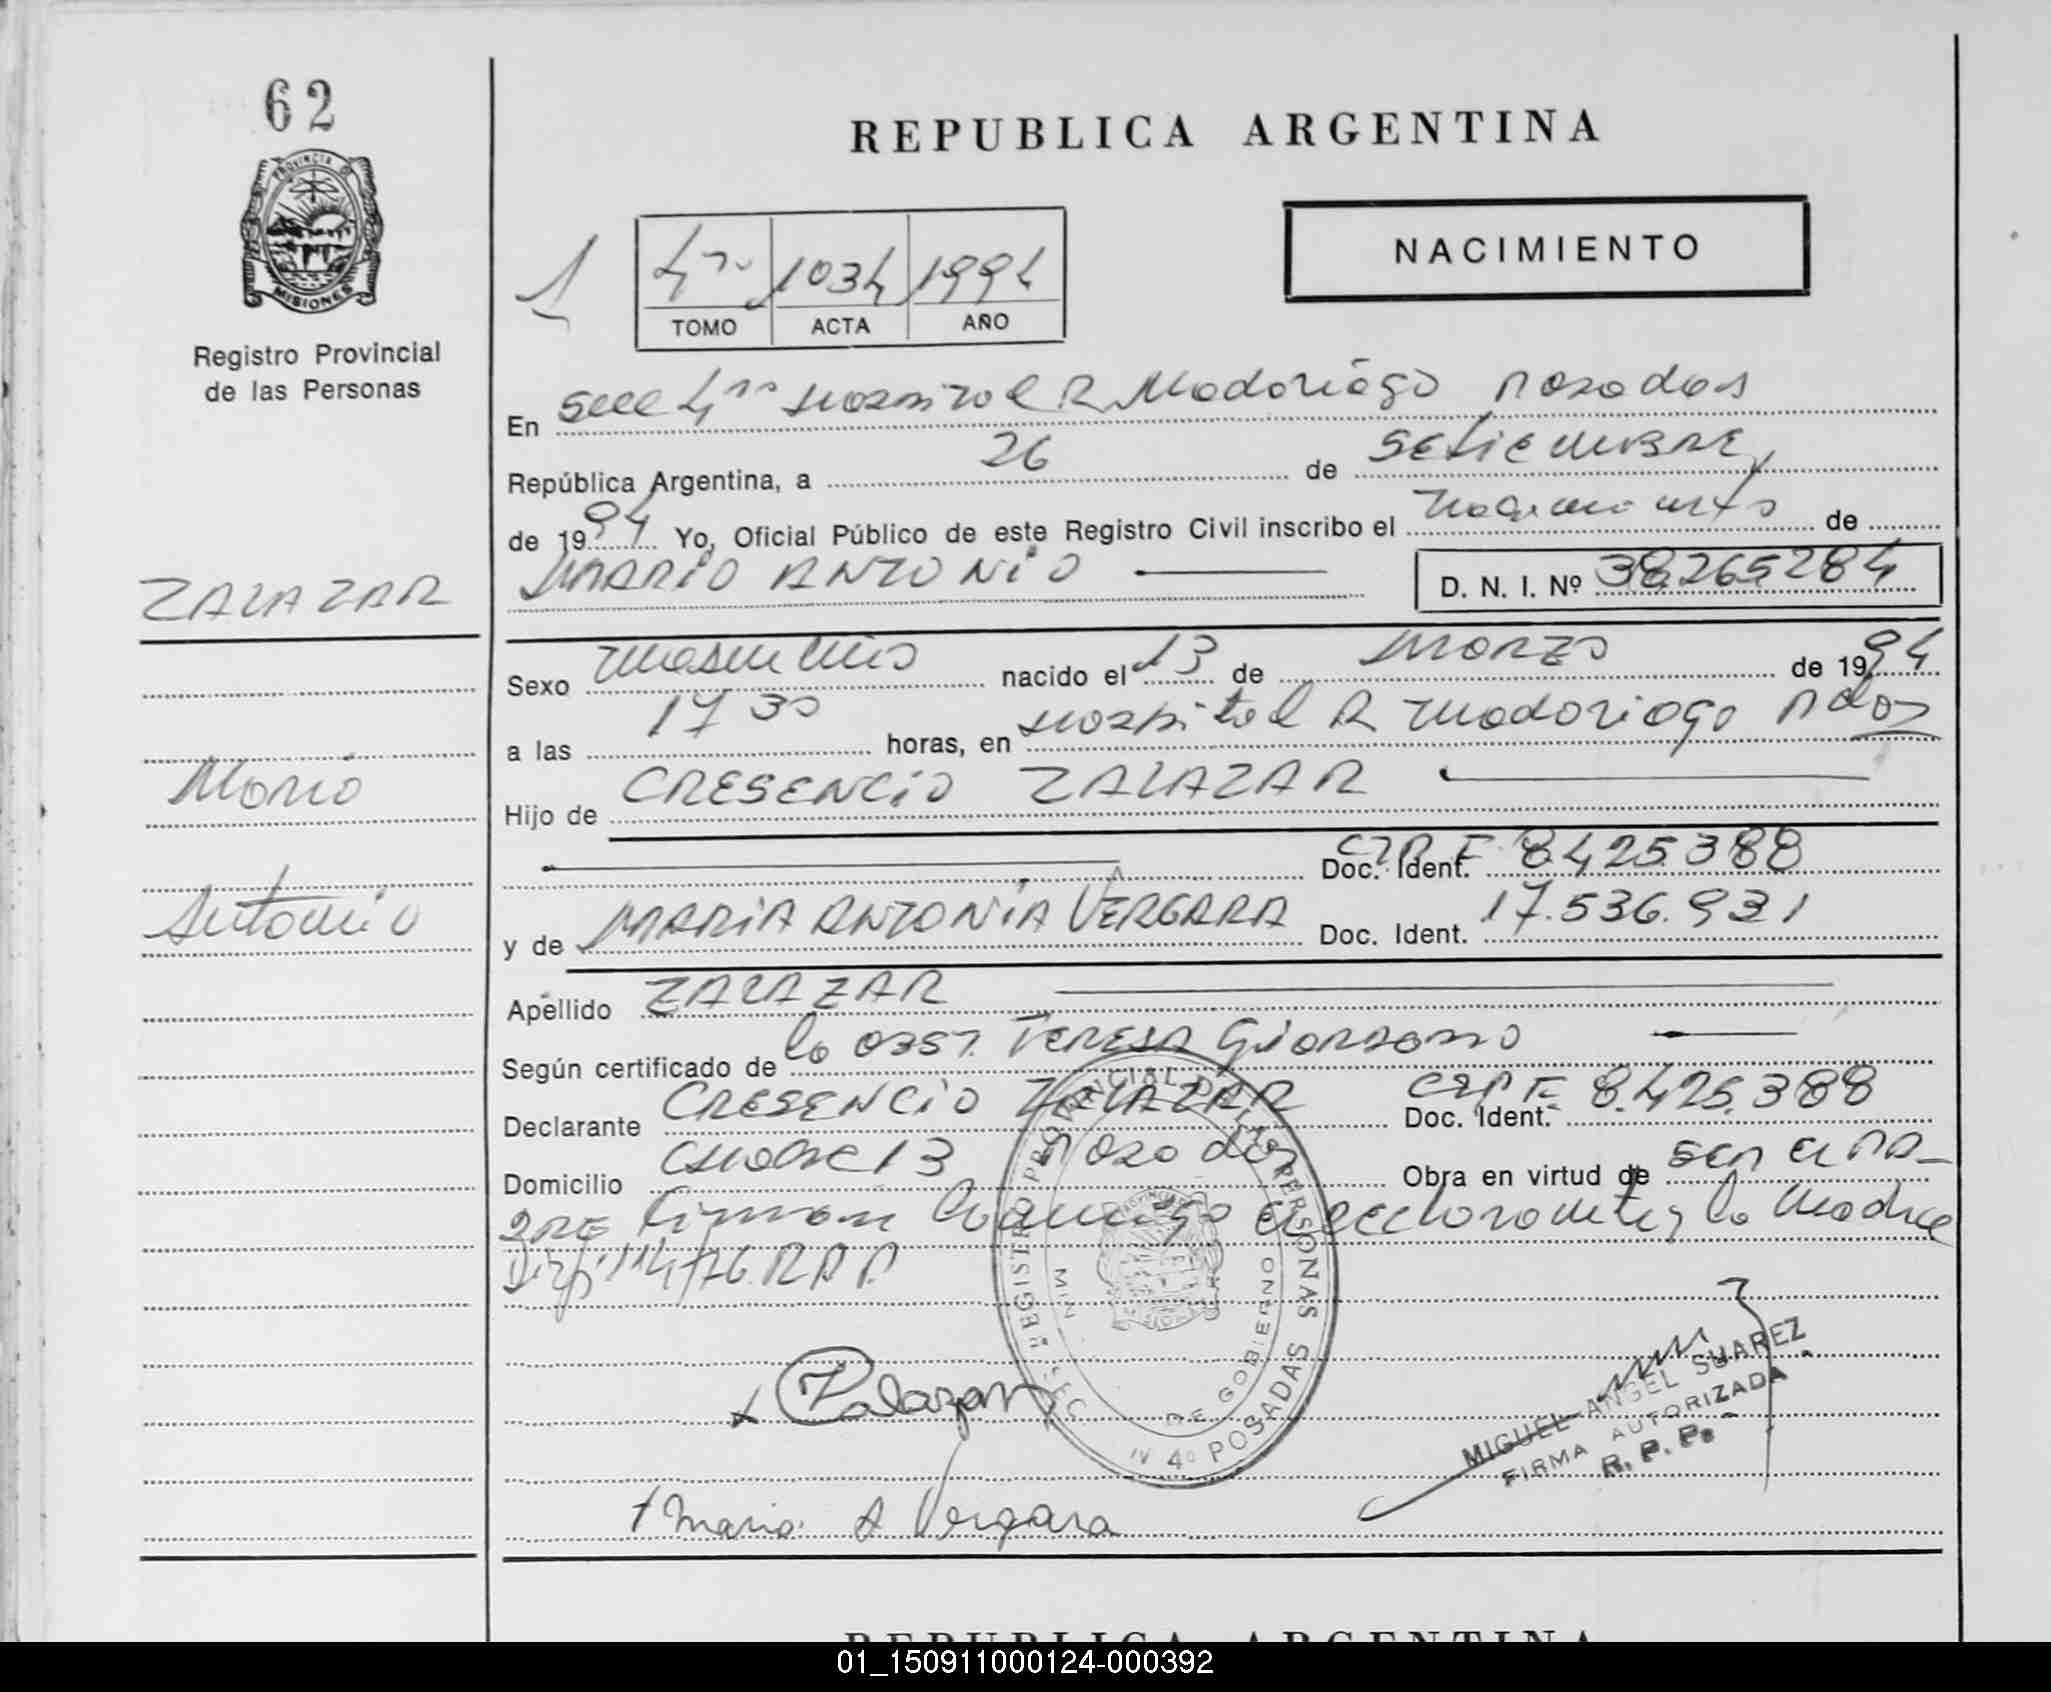 62
PROVINCIA DE
MISIONES
Registro Provincial
de las Personas
REPUBLICA ARGENTINA
NACIMIENTO
1
4ta 1034 1994
TOMO ACTA AÑO
En Secc 4ta Hospital R Madariaga Posadas
República Argentina, a 26 de Setiembre,
de 1994 Yo, Oficial Público de este Registro Civil inscribo el nacimiento de
ZALAZAR
MARIO ANTONIO
D. N. I. Nº 38.265284
Sexo masculino nacido el 13 de Marzo de 1994
a las 17 30 horas, en Hospital R Madariaga Pdas
Mario
Hijo de CRESENCIO ZALAZAR
Doc. Ident. 8.425.388
Antonio
y de MARIA ANTONIA VERGARA Doc. Ident. 17.536.931
Apellido ZALAZAR
Según certificado de la obst. Teresa Giordano
Declarante CRESENCIO ZALAZAR Doc. Ident. 8.425.388
Domicilio Chacre 13 Posadas Obra en virtud de ser el PA-
DRE Firman Conmigo el declarante y la Madre
Disp. 114/76 R.P.P.
REGISTRO PROVINCIAL DE LAS PERSONAS
MIN. DE GOBIERNO
SECC 4º POSADAS
Zalazar
MIGUEL ANGEL SUAREZ
FIRMA AUTORIZADA
R. P. P.
Maria A Vergara
REPUBLICA ARGENTINA
01_150911000124-000392